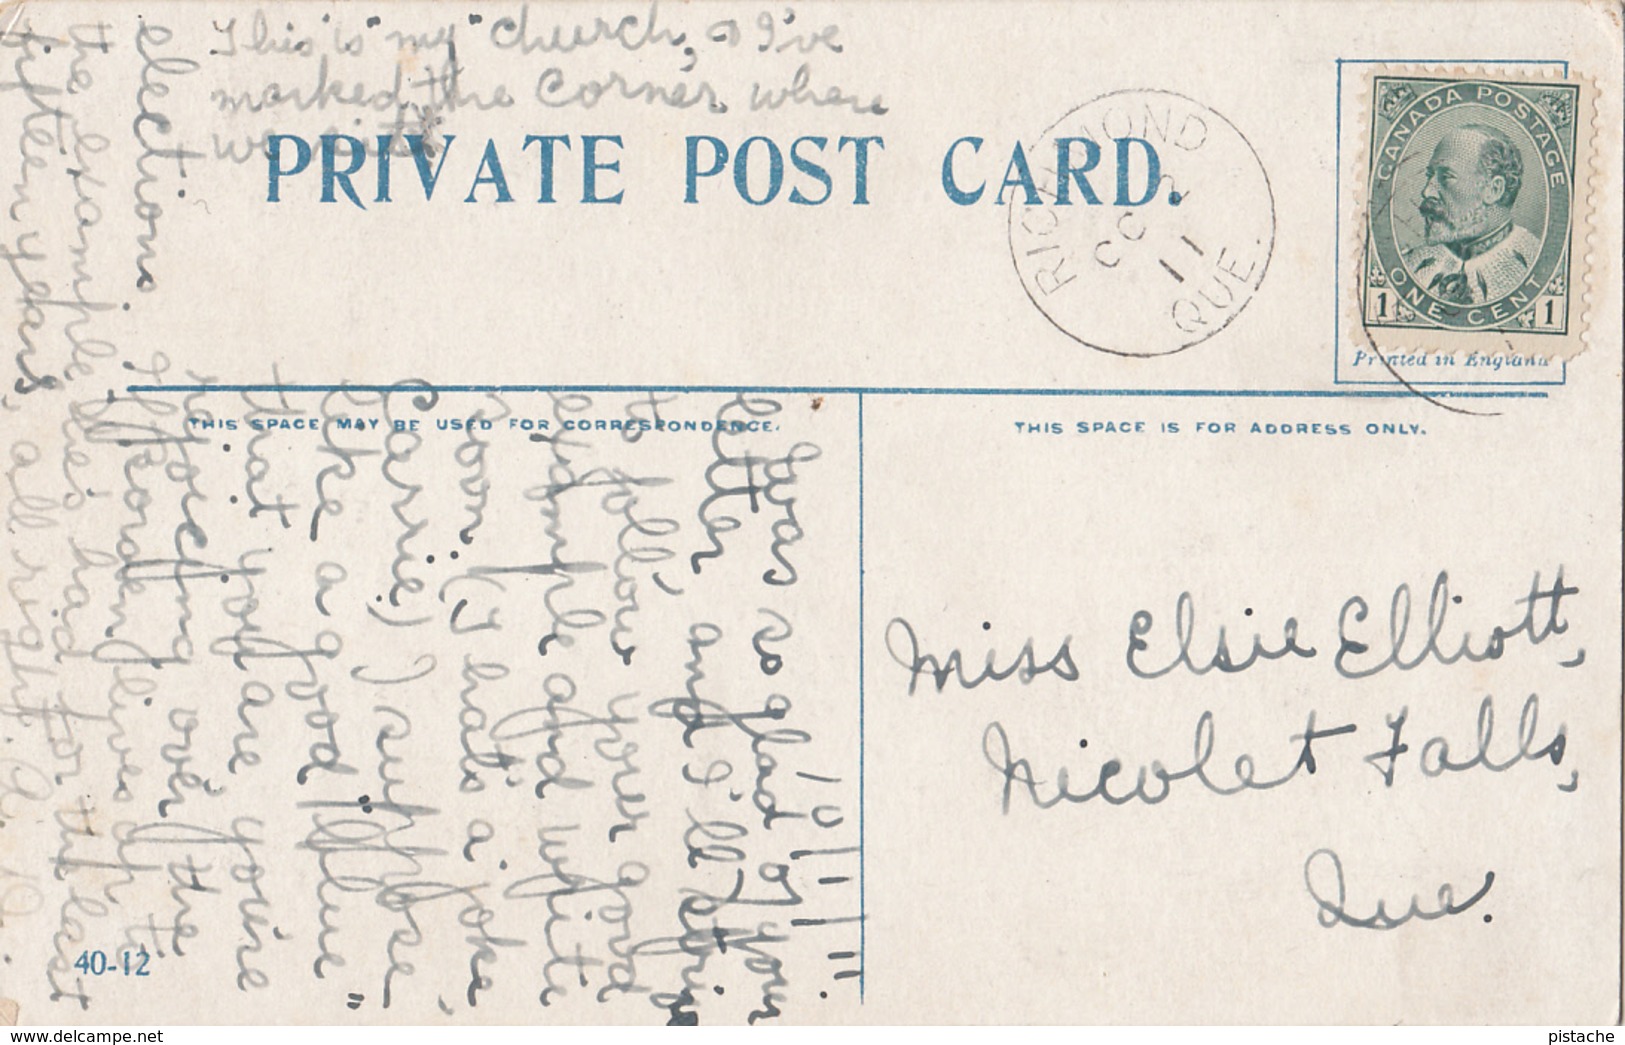 This is "my" church, I've
marked the corner where
we sit
PRIVATE POST CARD.
RICHMOND
OC 2
11
QUE.
CANADA POSTAGE
ONE CENT
1 1
Printed in England
THIS SPACE MAY BE USED FOR CORRESPONDENCE.
THIS SPACE IS FOR ADDRESS ONLY.
10/1/11.
Was so glad of your
letter and I'll strive
to follow your good
example and write
soon. (That's a joke
Carrie) I suppose
like a good "blue"
that you are you're
rejoicing over the
elections. If Borden lives up to
the example he's had for the last
fifteen years, all right.
Miss Elsie Elliott,
Nicolet Falls,
Que.
40-12
www.delcampe.net
pistache